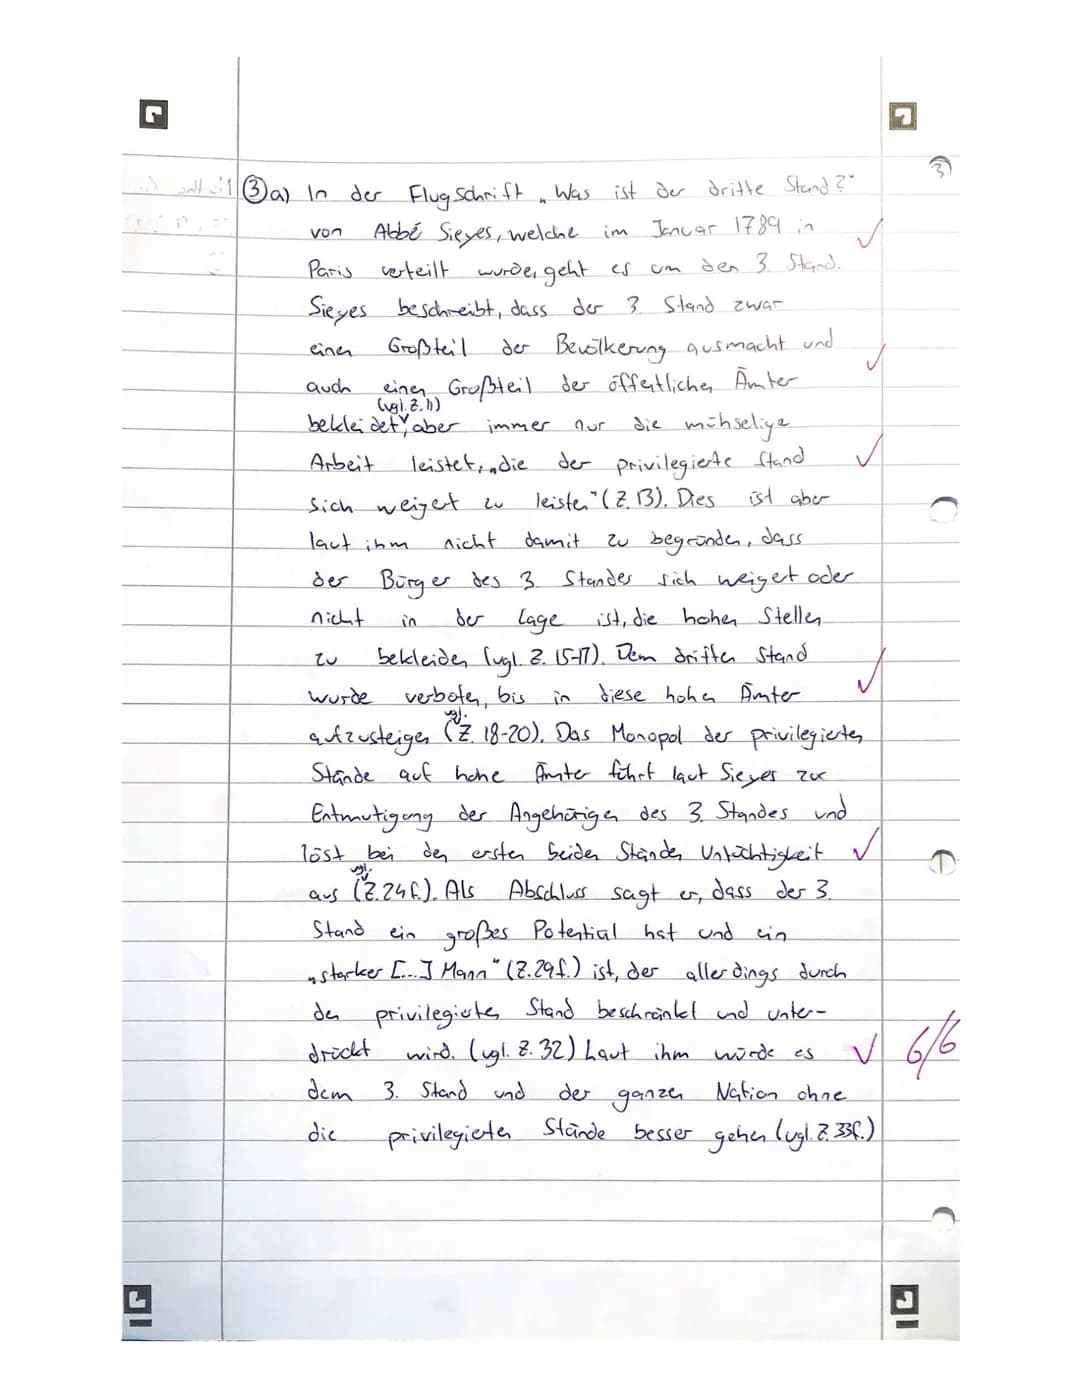 3)
③a) In der Flugschrift „Was ist der dritte Stand?"
von Abbé Sieyes, welche im Januar 1789 in
Paris verteilt wurde, geht es um den 3. Stand.
Sieyes beschreibt, dass der 3. Stand zwar
einen Großteil der Bevölkerung ausmacht und
auch einen Großteil der öffentlichen Ämter
(vgl. Z. 11)
bekleidet, aber immer nur die mühselige
Arbeit leistet, „die der privilegierte Stand
sich weigert zu leisten" (Z. 13). Dies ist aber
laut ihm nicht damit zu begründen, dass
der Bürger des 3. Standes sich weigert oder
nicht in der Lage ist, die hohen Stellen
zu bekleiden (vgl. Z. 15-17). Dem dritten Stand
wurde verboten, bis in diese hohen Ämter
vgl.
aufzusteigen (Z. 18-20). Das Monopol der privilegierten
Stände auf hohe Ämter führt laut Sieyes zur
Entmutigung der Angehörigen des 3. Standes und
löst bei den ersten beiden Ständen Untüchtigkeit
vgl.
aus (Z. 24 f.). Als Abschluss sagt er, dass der 3.
Stand ein großes Potential hat und ein
„starker [...] Mann" (Z. 29f.) ist, der allerdings durch
den privilegierten Stand beschränkt und unter-
drückt wird. (vgl. Z. 32) Laut ihm würde es
6/6
dem 3. Stand und der ganzen Nation ohne
die privilegierten Stände besser gehen (vgl. Z. 33f.)